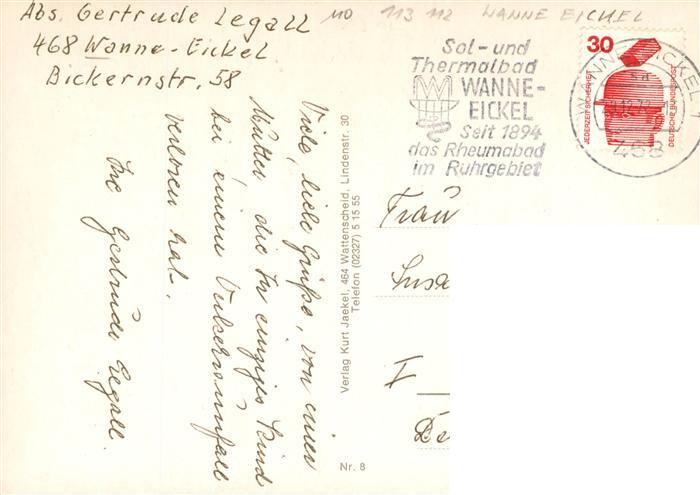 Abs. Gertrude Legall
468 Wanne-Eickel
Bickernstr. 58
110 113 112 WANNE EICKEL
Sol- und
Thermalbad
WANNE-
EICKEL
Seit 1894
das Rheumabad
im Ruhrgebiet
30
JEDERZEIT SICHERHEIT
DEUTSCHE BUNDESPOST
WANNE-EICKEL 1
468
Viele, liebe Grüße, von einer
Mutter die Ihr einziges Kind
bei einem
verloren hat.
Ihre Gertrude Legall.
Verlag Kurt Jaekel, 464 Wattenscheid, Lindenstr. 30
Telefon (02327) 5 15 55
Nr. 8
Frau
Susa
I